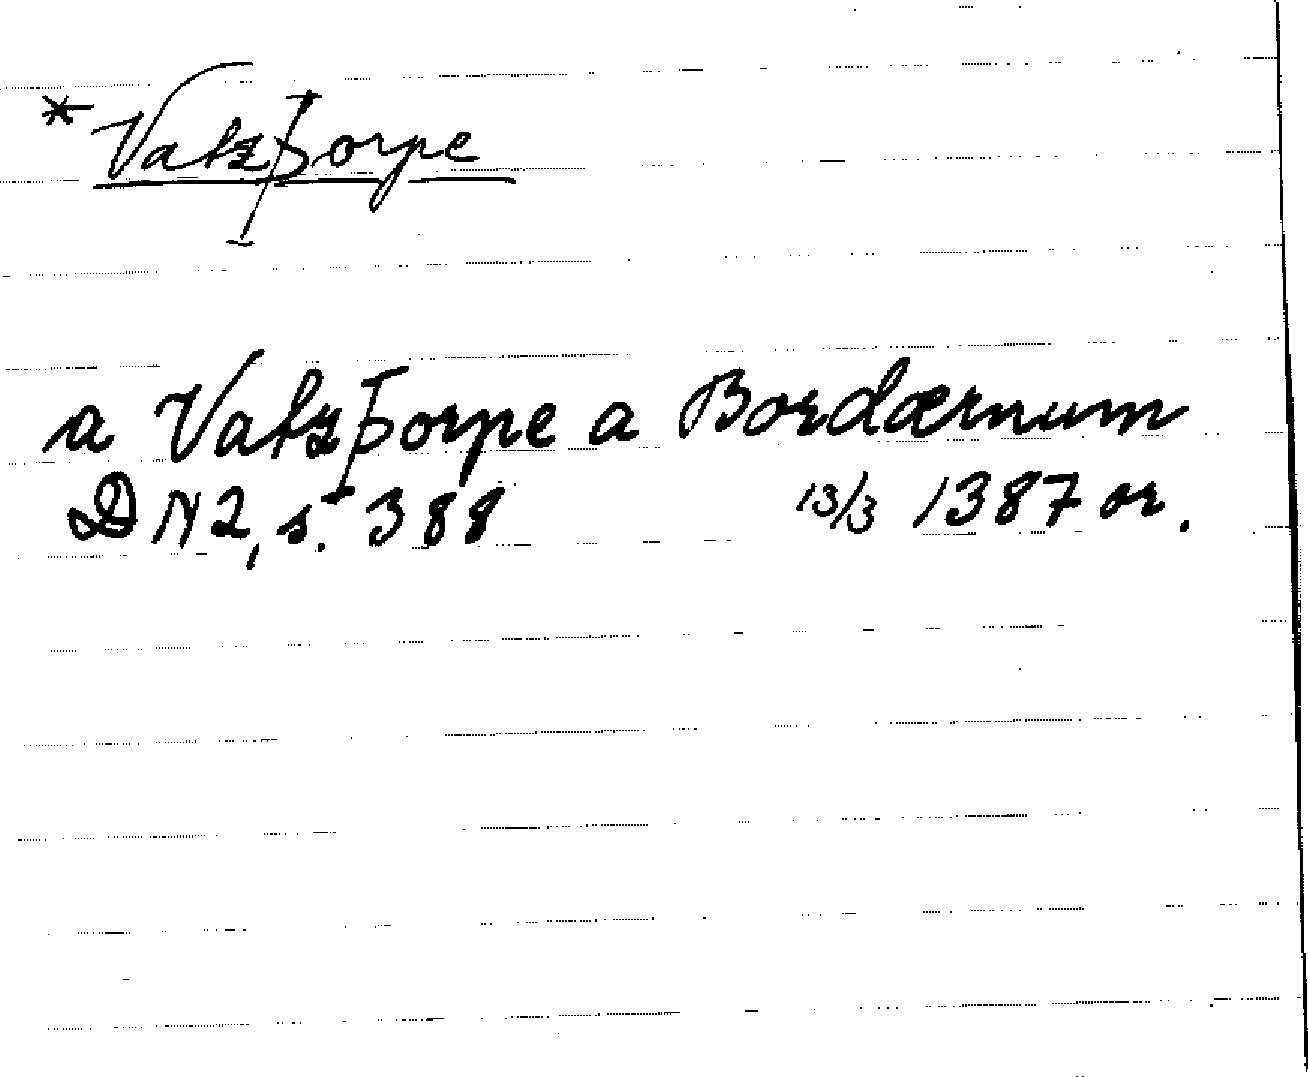 *Vatzþorpe
a Vatzþorpe a Bordærnum
DN 2, s. 388 13/3 1387 or.